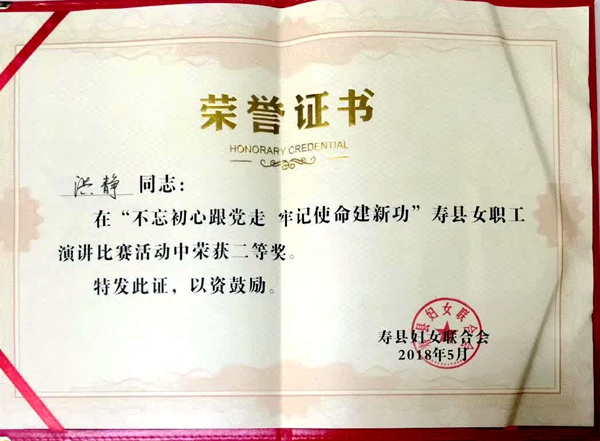 荣誉证书
HONORARY CREDENTIAL
洪静 同志：
在“不忘初心跟党走 牢记使命建新功”寿县女职工
演讲比赛活动中荣获二等奖。
特发此证，以资鼓励。
寿县妇女联合会
寿县妇女联合会
2018年5月